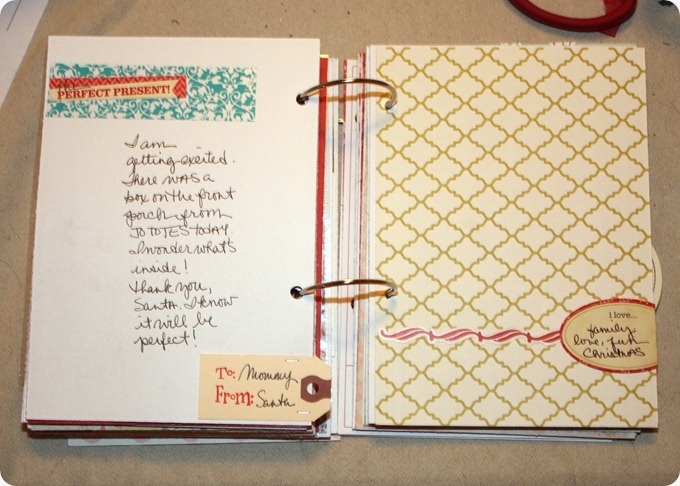 PERFECT PRESENT!
I am
getting excited.
There was a
box on the front
porch from
JO TOTES TODAY
I wonder what's
inside!
Thank you,
Santa. I know
it will be
perfect!
To: Mommy
From: Santa
I love...
family
love, fun
CHRISTMAS